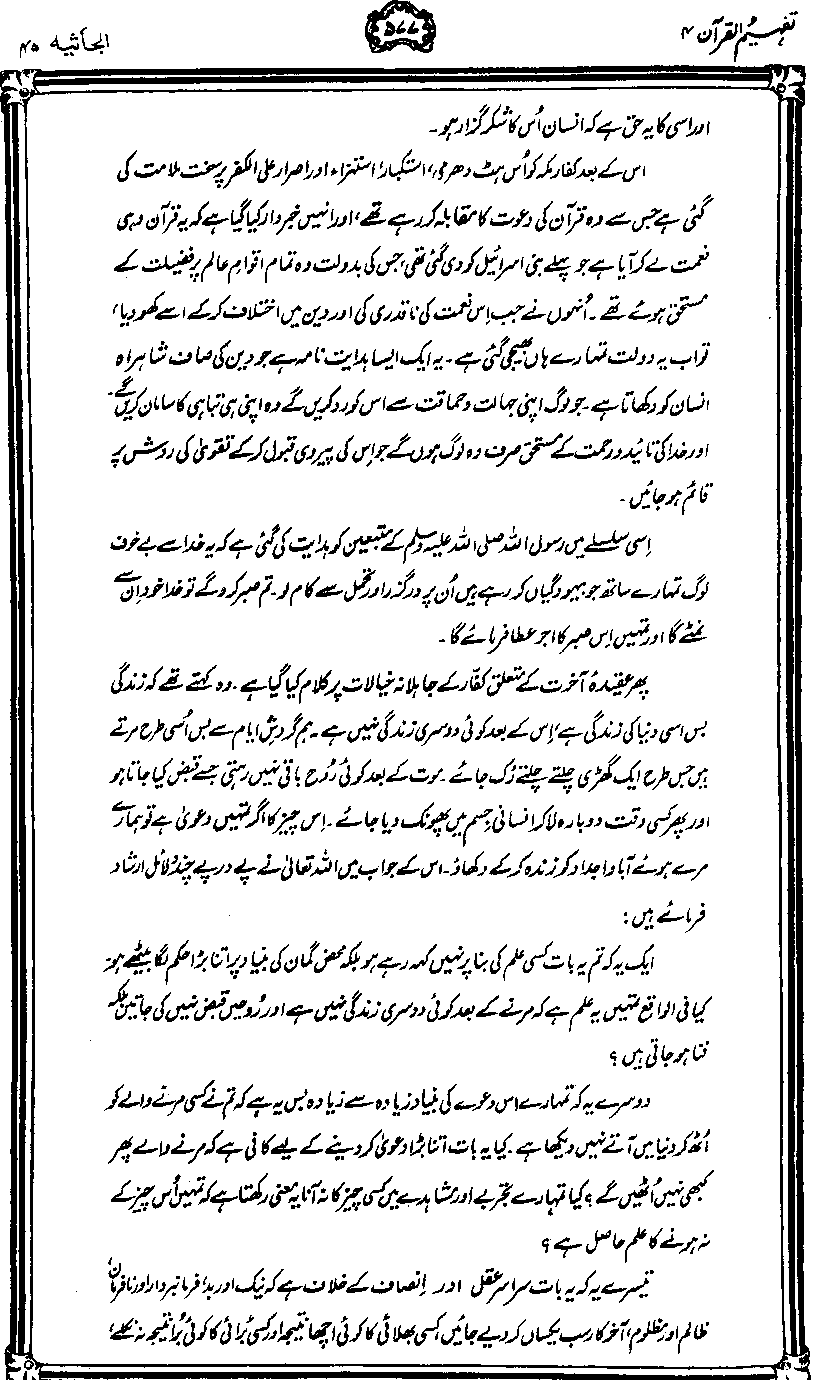 تفہیم القرآن ۴
۵۷۷
الجاثیہ ۴۵
اور اسی کا یہ حق ہے کہ انسان اُس کا شکر گزار ہو۔
اس کے بعد کفار مکہ کو اُس ہٹ دھرمی، استکبار، استہزاء اور اصرار علی الکفر پر سخت ملامت کی
گئی ہے جس سے وہ قرآن کی دعوت کا مقابلہ کر رہے تھے، اور انہیں خبردار کیا گیا ہے کہ یہ قرآن وہی
نعمت لے کر آیا ہے جو پہلے بنی اسرائیل کو دی گئی تھی، جس کی بدولت وہ تمام اقوامِ عالم پر فضیلت کے
مستحق ہوئے تھے۔ اُنہوں نے جب اِس نعمت کی ناقدری کی اور دین میں اختلاف کرکے اسے کھو دیا،
تو اب یہ دولت تمہارے ہاں بھیجی گئی ہے۔ یہ ایک ایسا ہدایت نامہ ہے جو دین کی صاف شاہراہ
انسان کو دکھاتا ہے۔ جو لوگ اپنی جہالت و حماقت سے اس کو رد کریں گے وہ اپنی ہی تباہی کا سامان کریں گے۔
اور خدا کی تائید و رحمت کے مستحق صرف وہ لوگ ہوں گے جو اِس کی پیروی قبول کرکے تقویٰ کی روش پر
قائم ہو جائیں۔
اِسی سلسلے میں رسول اللہ صلی اللہ علیہ وسلم کے متبعین کو ہدایت کی گئی ہے کہ یہ خدا سے بے خوف
لوگ تمہارے ساتھ جو بیہودگیاں کر رہے ہیں اُن پر درگزر اور تحمل سے کام لو۔ تم صبر کرو گے تو خدا خود اِن سے
نمٹے گا اور تمہیں اِس صبر کا اجر عطا فرمائے گا۔
پھر عقیدۂ آخرت کے متعلق کفّار کے جاہلانہ خیالات پر کلام کیا گیا ہے۔ وہ کہتے تھے کہ زندگی
بس اسی دنیا کی زندگی ہے، اِس کے بعد کوئی دوسری زندگی نہیں ہے۔ ہم گردشِ ایام سے بس اُسی طرح مرتے
ہیں جس طرح ایک گھڑی چلتے چلتے رُک جائے۔ موت کے بعد کوئی رُوح باقی نہیں رہتی جسے قبض کیا جاتا ہو
اور پھر کسی وقت دوبارہ لا کر انسانی جسم میں پھونک دیا جائے۔ اِس چیز کا اگر تمہیں دعویٰ ہے تو ہمارے
مرے ہوئے آباو اجداد کو زندہ کرکے دکھاؤ۔ اس کے جواب میں اللہ تعالیٰ نے پے در پے چند دلائل ارشاد
فرمائے ہیں:
ایک یہ کہ تم یہ بات کسی علم کی بنا پر نہیں کہہ رہے ہو بلکہ محض گمان کی بنیاد پر اتنا بڑا حکم لگا بیٹھے ہو۔
کیا فی الواقع تمہیں یہ علم ہے کہ مرنے کے بعد کوئی دوسری زندگی نہیں ہے اور رُوحیں قبض نہیں کی جاتیں بلکہ
فنا ہو جاتی ہیں؟
دوسرے یہ کہ تمہارے اس دعوے کی بنیاد زیادہ سے زیادہ بس یہ ہے کہ تم نے کسی مرنے والے کو
اُٹھ کر دنیا میں آتے نہیں دیکھا ہے۔ کیا یہ بات اتنا بڑا دعویٰ کر دینے کے لیے کافی ہے کہ مرنے والے پھر
کبھی نہیں اُٹھیں گے؟ کیا تمہارے تجربے اور مشاہدے میں کسی چیز کا نہ آنا یہ معنی رکھتا ہے کہ تمہیں اُس چیز کے
نہ ہونے کا علم حاصل ہے؟
تیسرے یہ کہ یہ بات سراسر عقل اور اِنصاف کے خلاف ہے کہ نیک اور بد، فرمانبردار اور نافرمان،
ظالم اور مظلوم، آخر کار سب یکساں کر دیے جائیں، کسی بھلائی کا کوئی اچھا نتیجہ اور کسی بُرائی کا کوئی بُرا نتیجہ نہ نکلے،